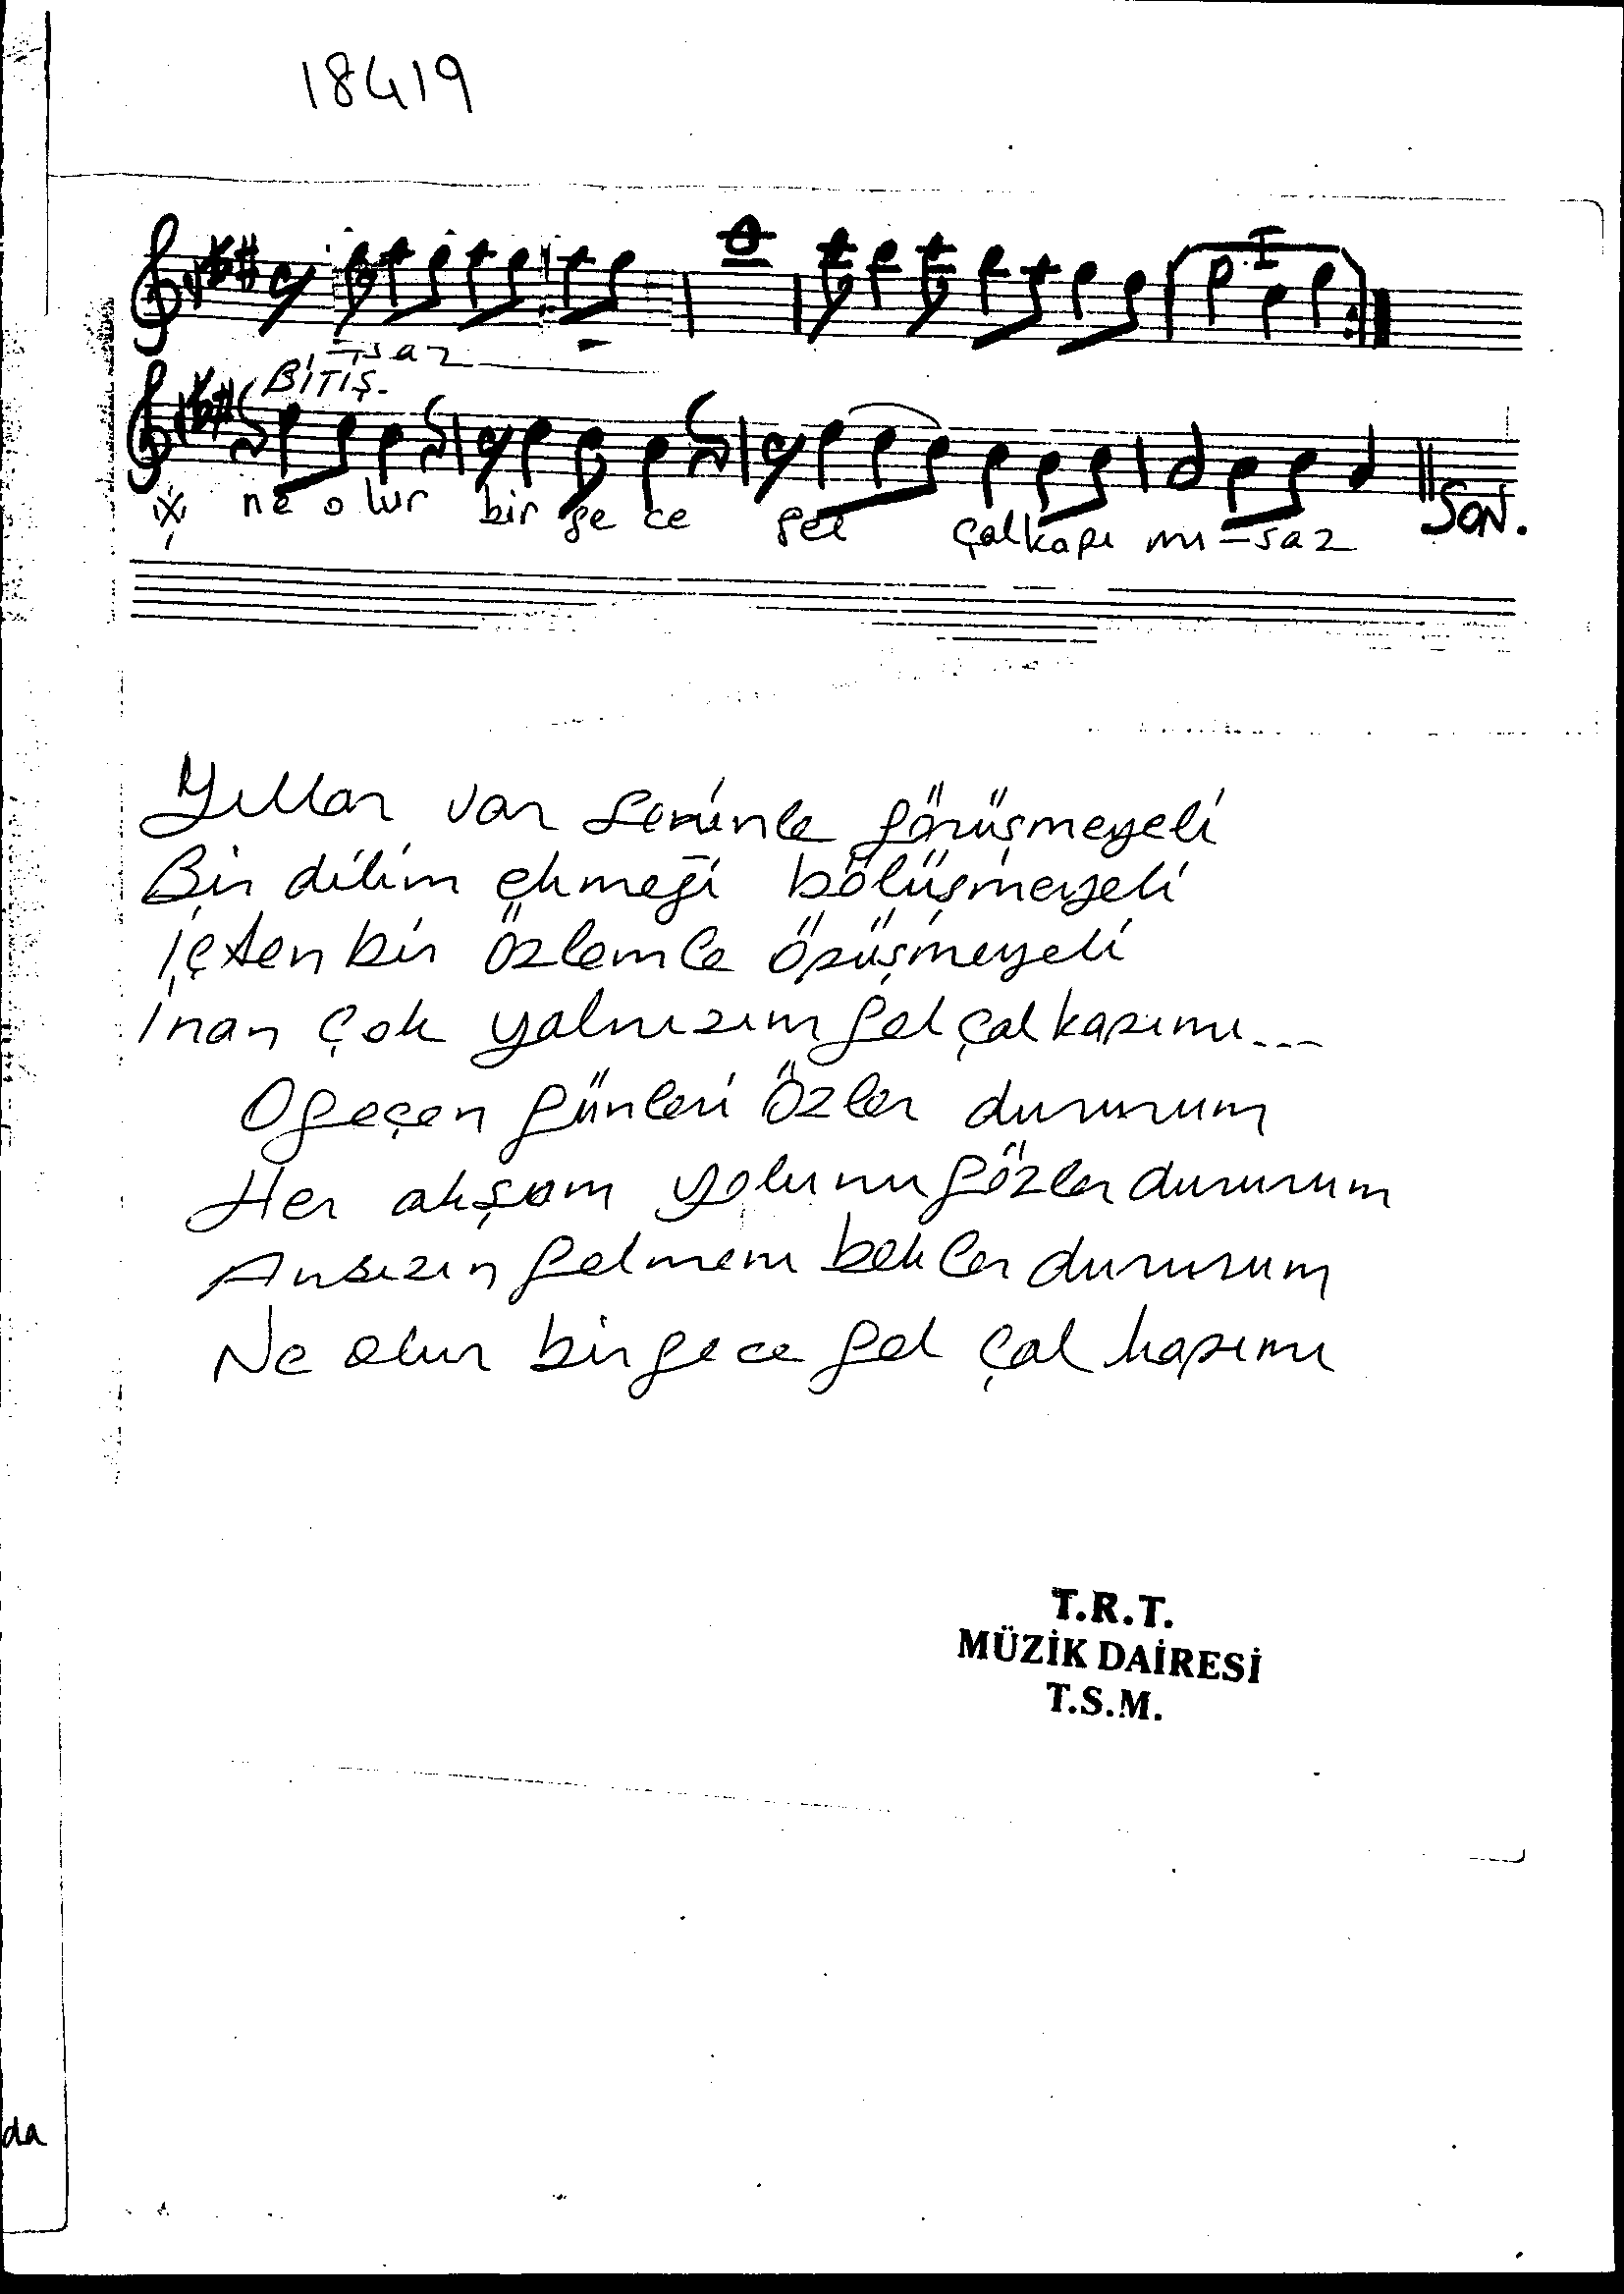 18419
I
saz
BİTİŞ.
ne o lur bir ge ce gel çal kapı mı - saz SON.
Yıllar var seninle görüşmeyeli
Bir dilim ekmeği bölüşmeyeli
İçten bir özlemle öpüşmeyeli
İnan çok yalnızım gel çal kapımı...
O geçen günleri özler dururum
Her akşam yolunu gözler dururum
Ansızın gelmeni bekler dururum
Ne olur bir gece gel çal kapımı
T.R.T.
MÜZİK DAİRESİ
T.S.M.
da